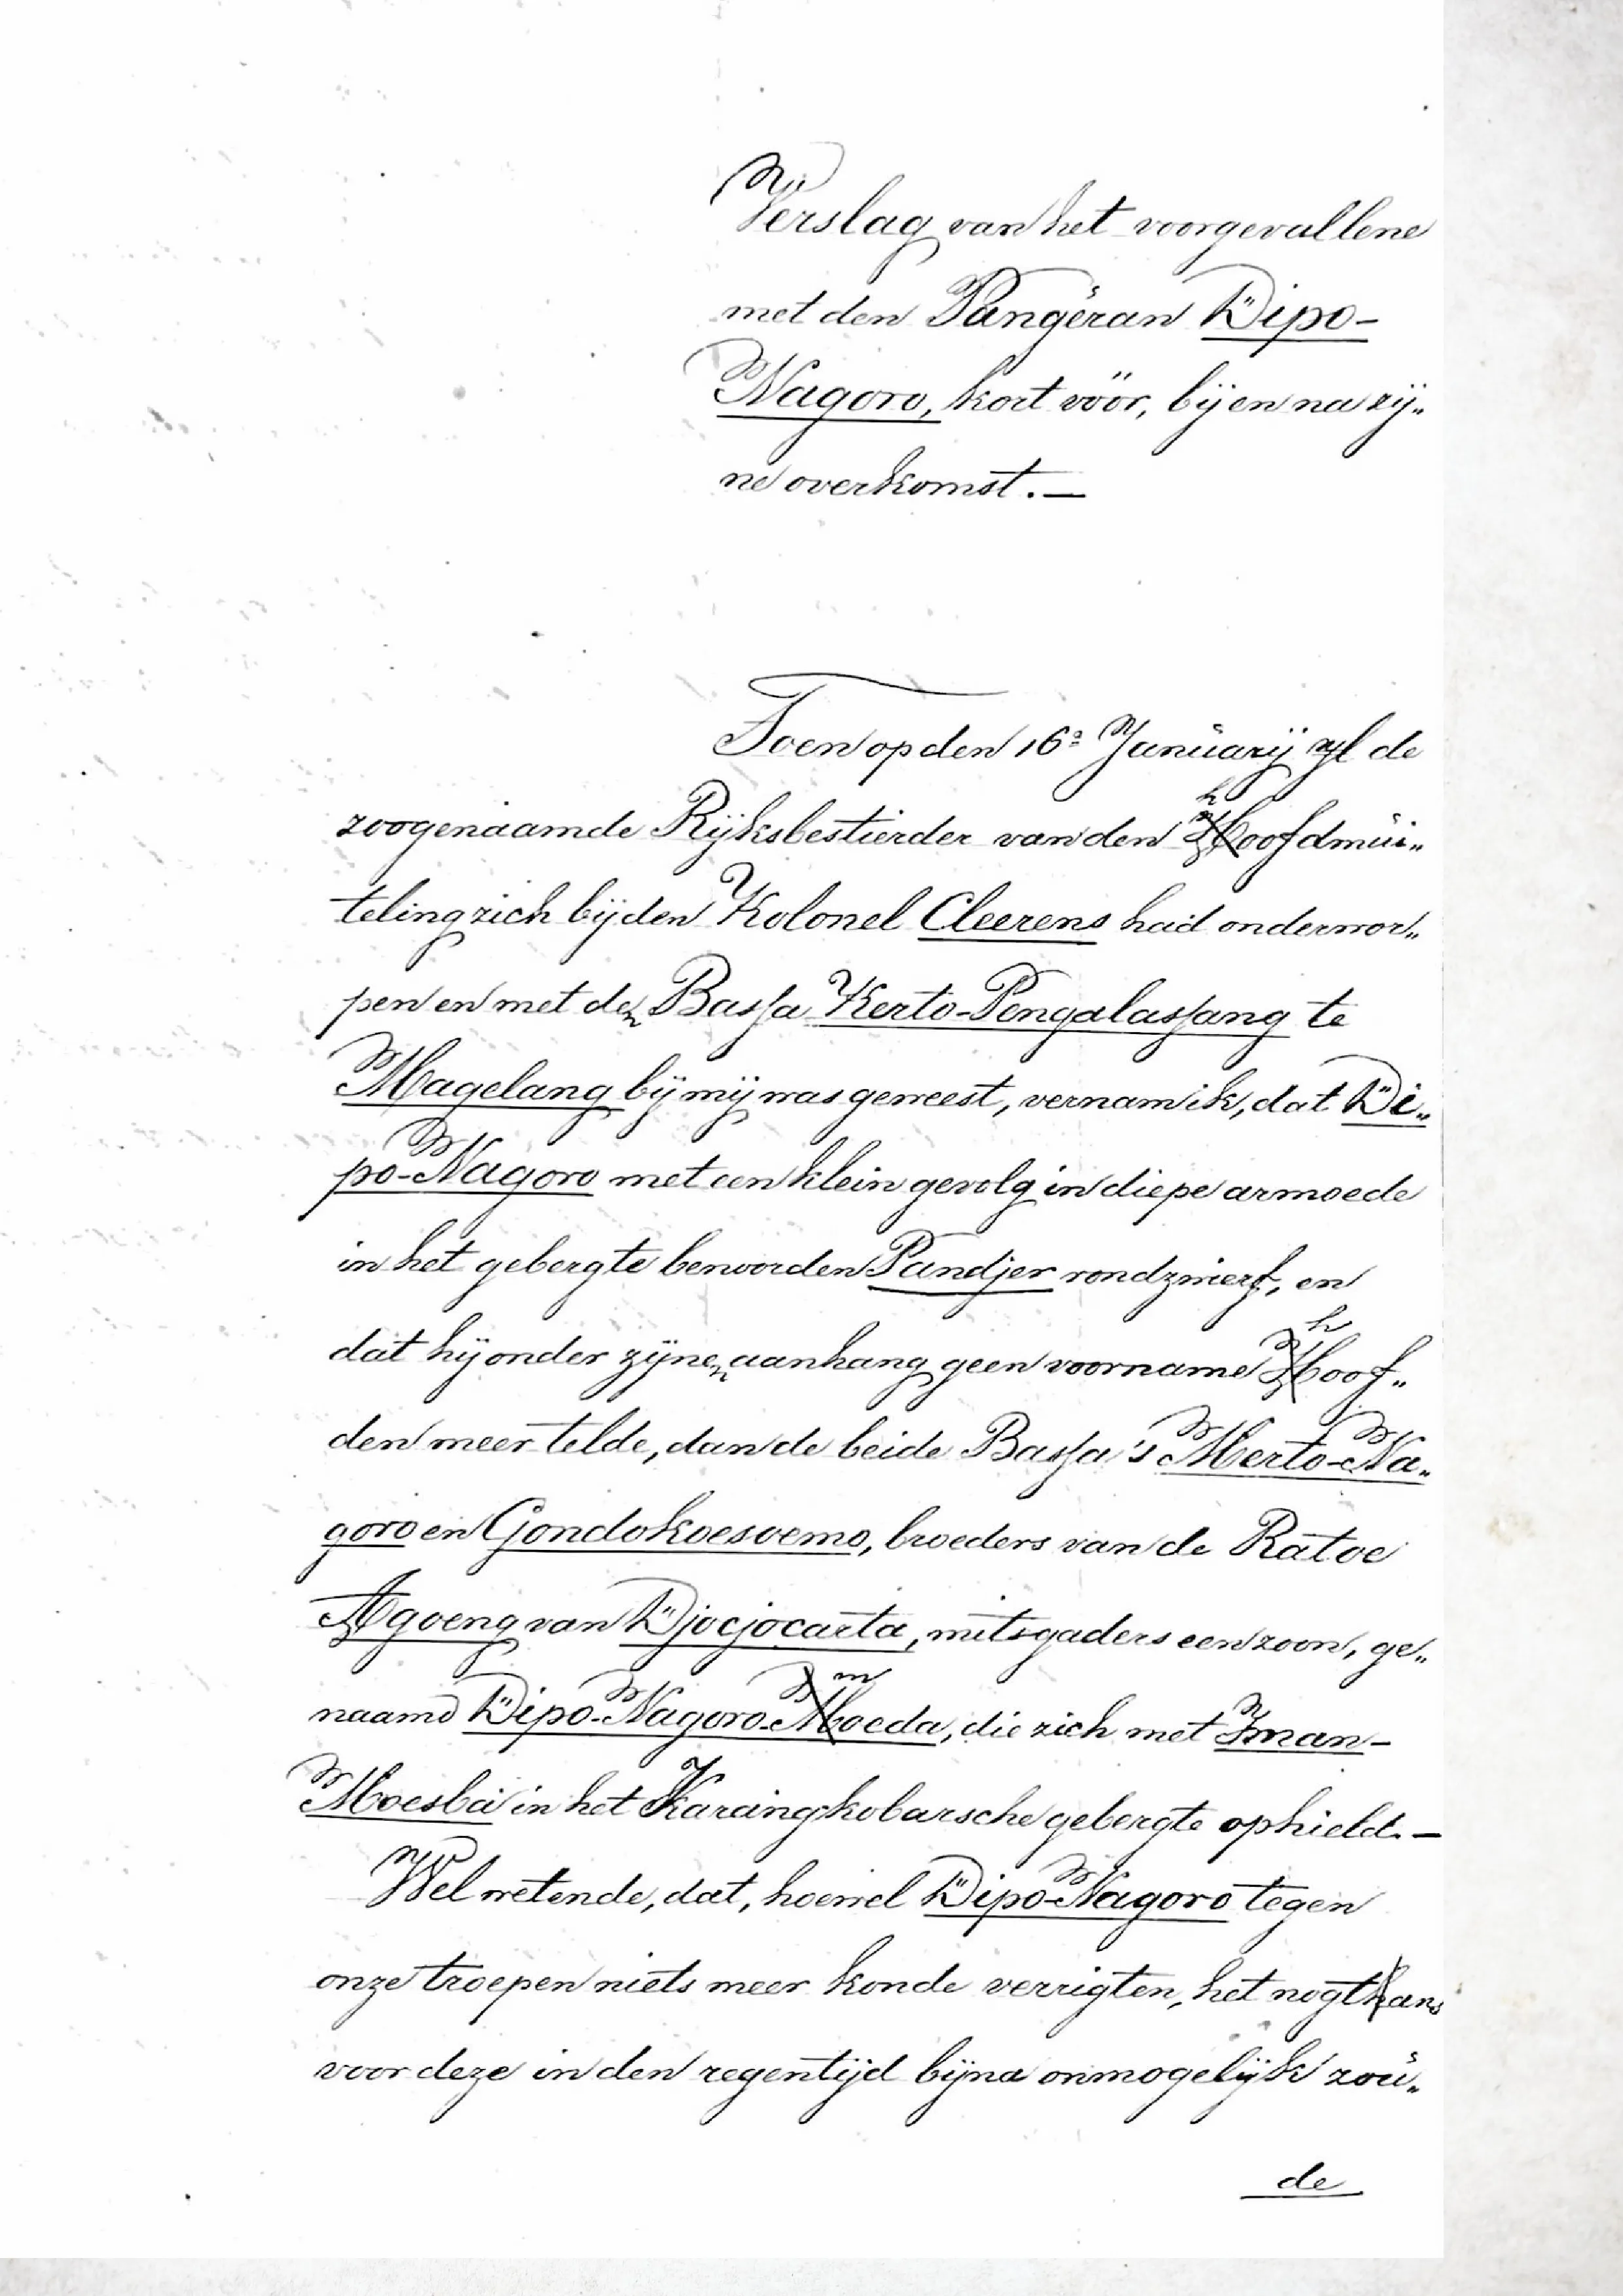 Verslag van het voorgevallene
met den Pangeran Dipo-
Nagoro, kort vöör, bij en na zij„
ne overkomst. —
Toen op den 16e Januarij jl de
zoogenaamde Rijksbestierder van den hoofdmui„
teling zich bij den Kolonel Cleerens had onderwor„
pen en met den Bassa Kerto-Pengalassang te
Magelang bij mij was geweest, vernam ik, dat Di„
po-Nagoro met een klein gevolg in diepe armoede
in het gebergte benoorden Pandjer rondzwierf, en
dat hij onder zijnen aanhang geen voorname hoof„
den meer telde, dan de beide Bassa's Merto-Na„
goro en Gondokoesoemo, broeders van de Ratoe
Agoeng van Djocjocarta, mitsgaders een zoon, ge„
naamd Dipo-Nagoro-moeda, die zich met Iman-
Moesba in het Karangkobarsche gebergte ophield. —
Wel wetende, dat, hoewel Dipo-Nagoro tegen
onze troepen niets meer konde verrigten, het nogtans
voor deze in den regentijd bijna onmogelijk zou„
de